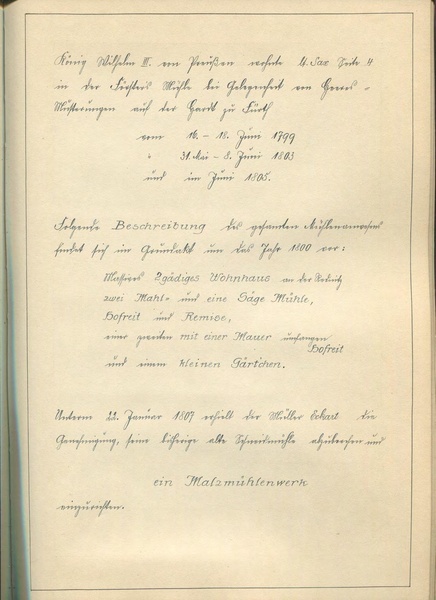 König Wilhelm III. von Preußen wohnte lt. Sax Seite 4
in der Försters Mühle bei Gelegenheit von Heeres-
Musterungen auf der Hardt zu Fürth
vom 16. - 18. Juni 1799
" 31. Mai - 8. Juni 1803
und im Juni 1805.
Folgende Beschreibung des gesamten Mühlenanwesens
findet sich im Grundakt um das Jahr 1800 vor:
Massives 2gädiges Wohnhaus an der Rednitz
zwei Mahl- und eine Säge Mühle,
Hofreit und Remise,
einer zweiten mit einer Mauer umfangen
Hofreit
und einem kleinen Gärtchen.
Unterm 22. Januar 1807 erhielt der Müller Eckart die
Genehmigung, seine bisherige alte Schneidmühle abzubrechen und
ein Malzmühlenwerk
einzurichten.